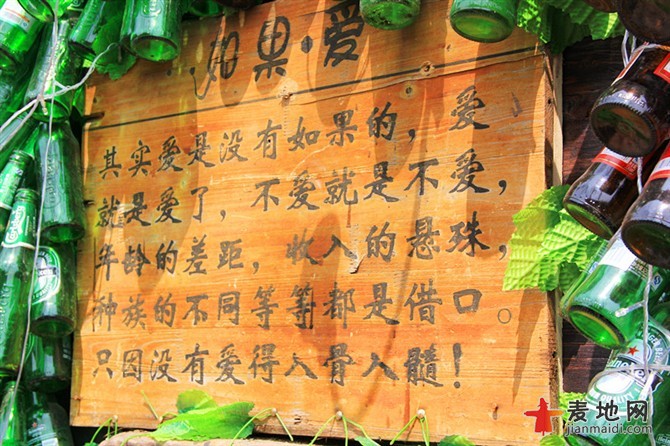 ·如果·爱
其实爱是没有如果的，爱
就是爱了，不爱就是不爱，
年龄的差距，收入的悬珠，
种族的不同等等都是借口。
只因没有爱得入骨入髓！
麦地网
jianmaidi.com